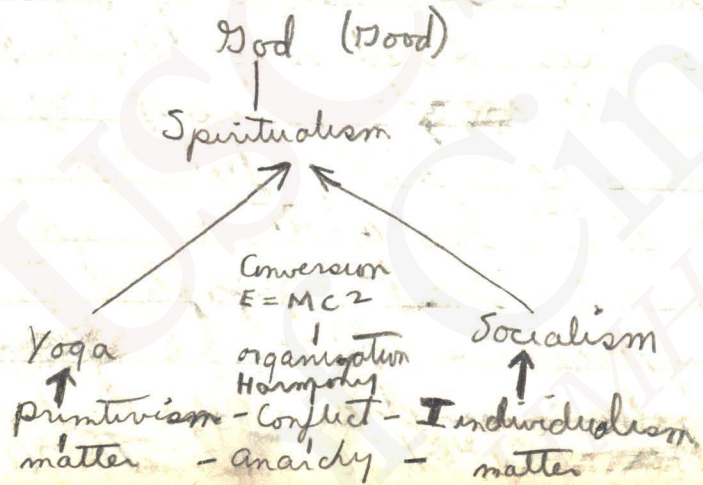 God (Good)
Spiritualism
Conversion
E=MC2
Yoga
Socialism
organization
Harmony
primtivism - Conflict - Individualism
matter - anarchy - matter